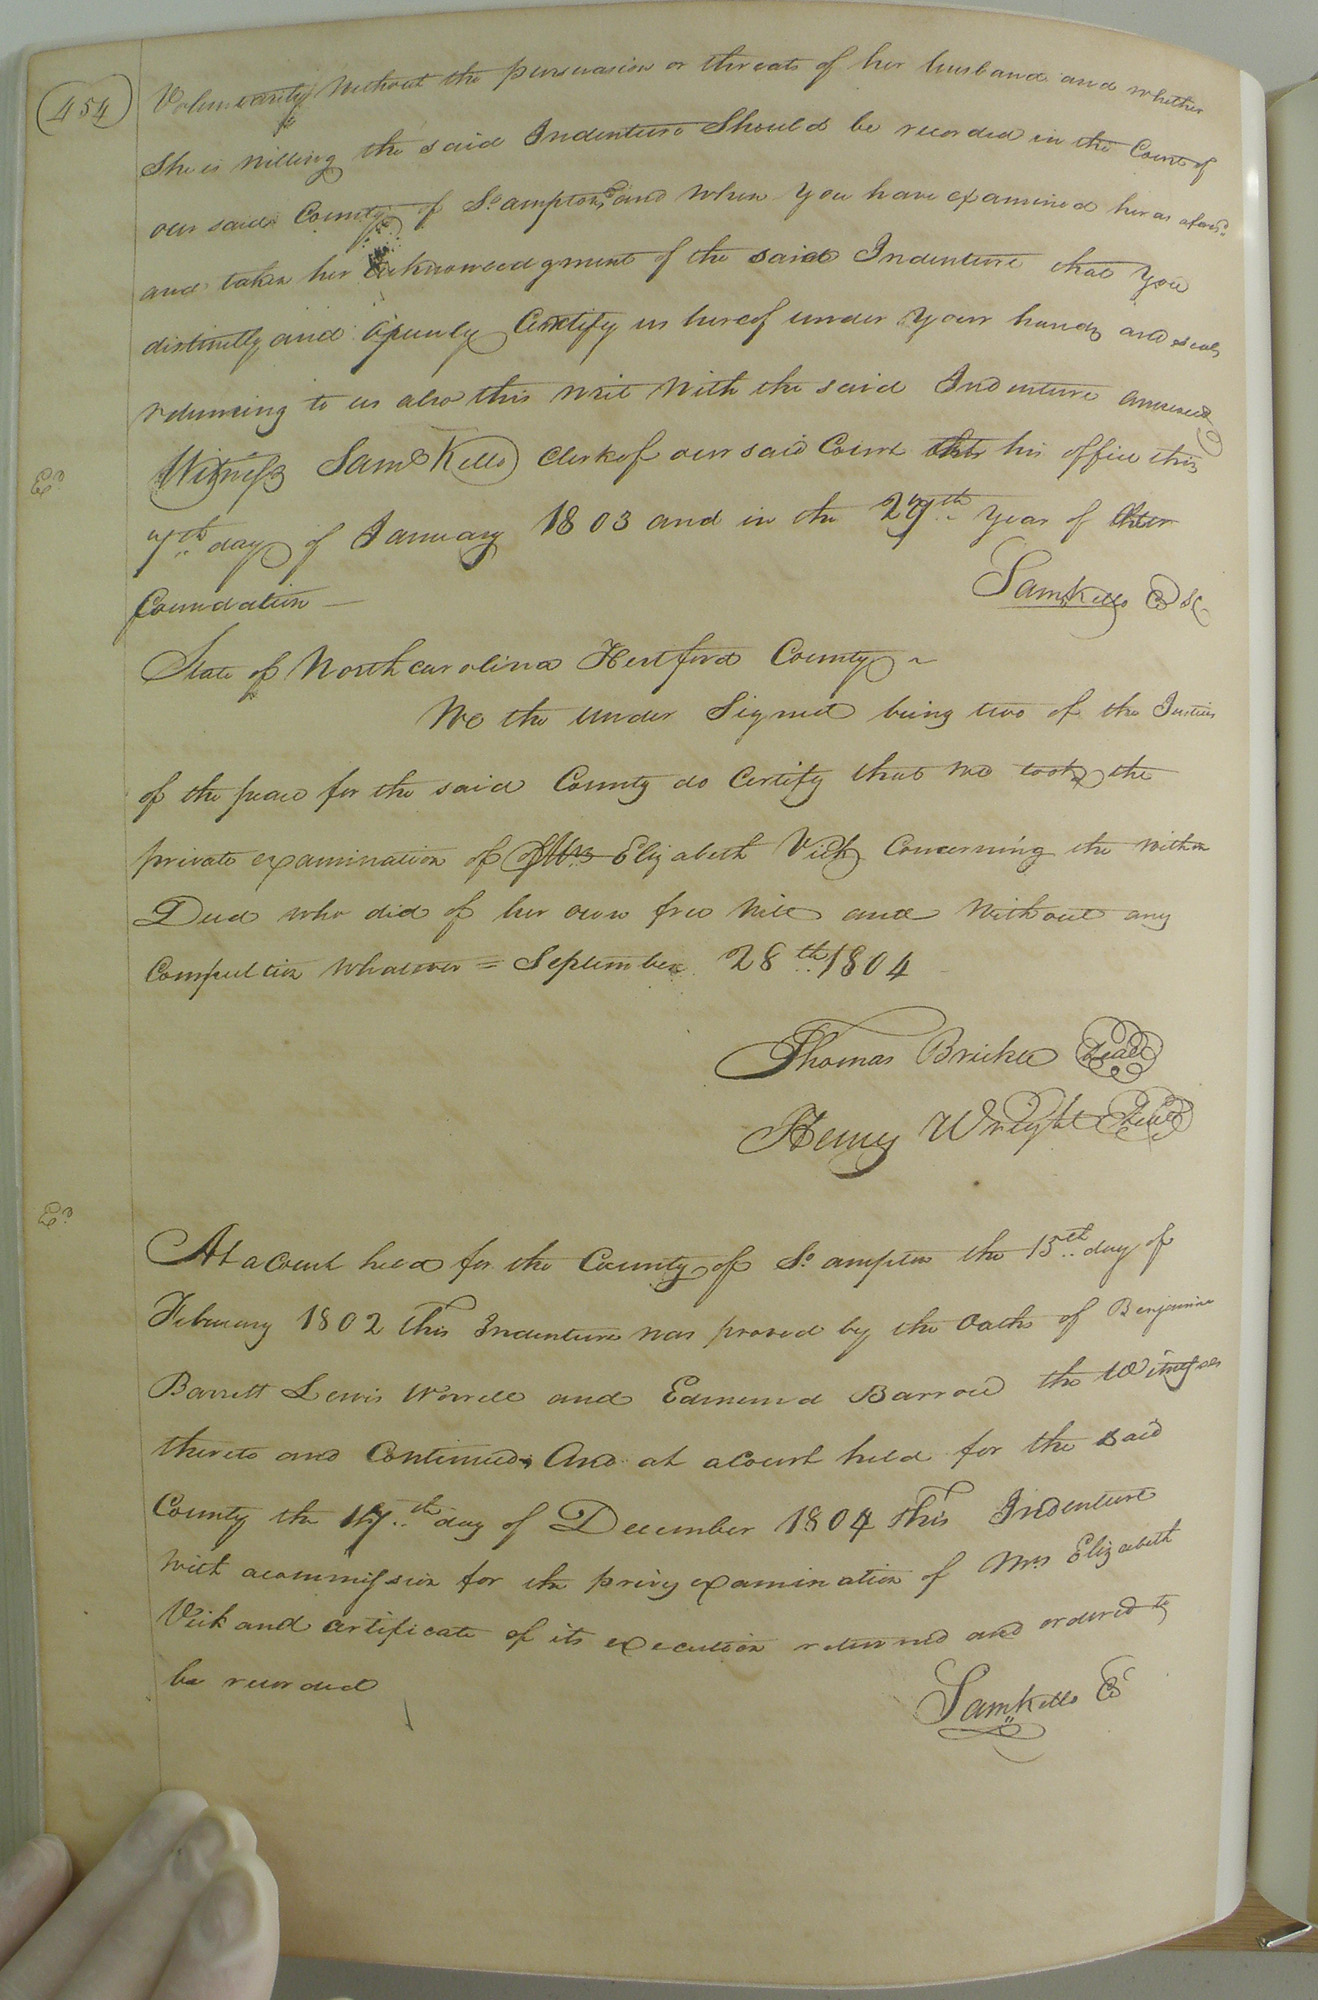 454
Voluntarily Without the persuasion or threats of her husband and whether
She is Willing the said Indenture Should be recorded in the Court of
our said County of So. ampton and When You have examined her as afores.d
and taken her acknowledgment of the said Indenture that You
distinctly and openly Certify us hereof under Your hands and seals
returning to us also this Writ With the said Indenture annexed
Witness Saml Kello Clerk of our said Court at his office this
7th day of January 1803 and in the 27th Year of
Foundation
Sam Kello
State of North carolina Hertford County
We the under Signed being two of the Justices
of the peace for the said County do Certify that We took the
private examination of Elizabeth Vick Concerning the within
Deed who did of her own free Will and Without any
Compultion Whatever = September 28th 1804
Thomas Brickle Seal
Henry Wright Seal
Ed
Ed
At a Court held for the County of So. ampton the 15th day of
February 1802 This Indenture was proved by the Oaths of Benjamin
Barrett Lewis Worrell and Edmund Barrow the Witnesses
thereto and Continued, And at a Court held for the said
County the 17th day of December 1804 This Indenture
With a commission for the privy examination of Mrs Elizabeth
Vick and certificate of its execution returned and ordered to
be recorded
Sam Kello